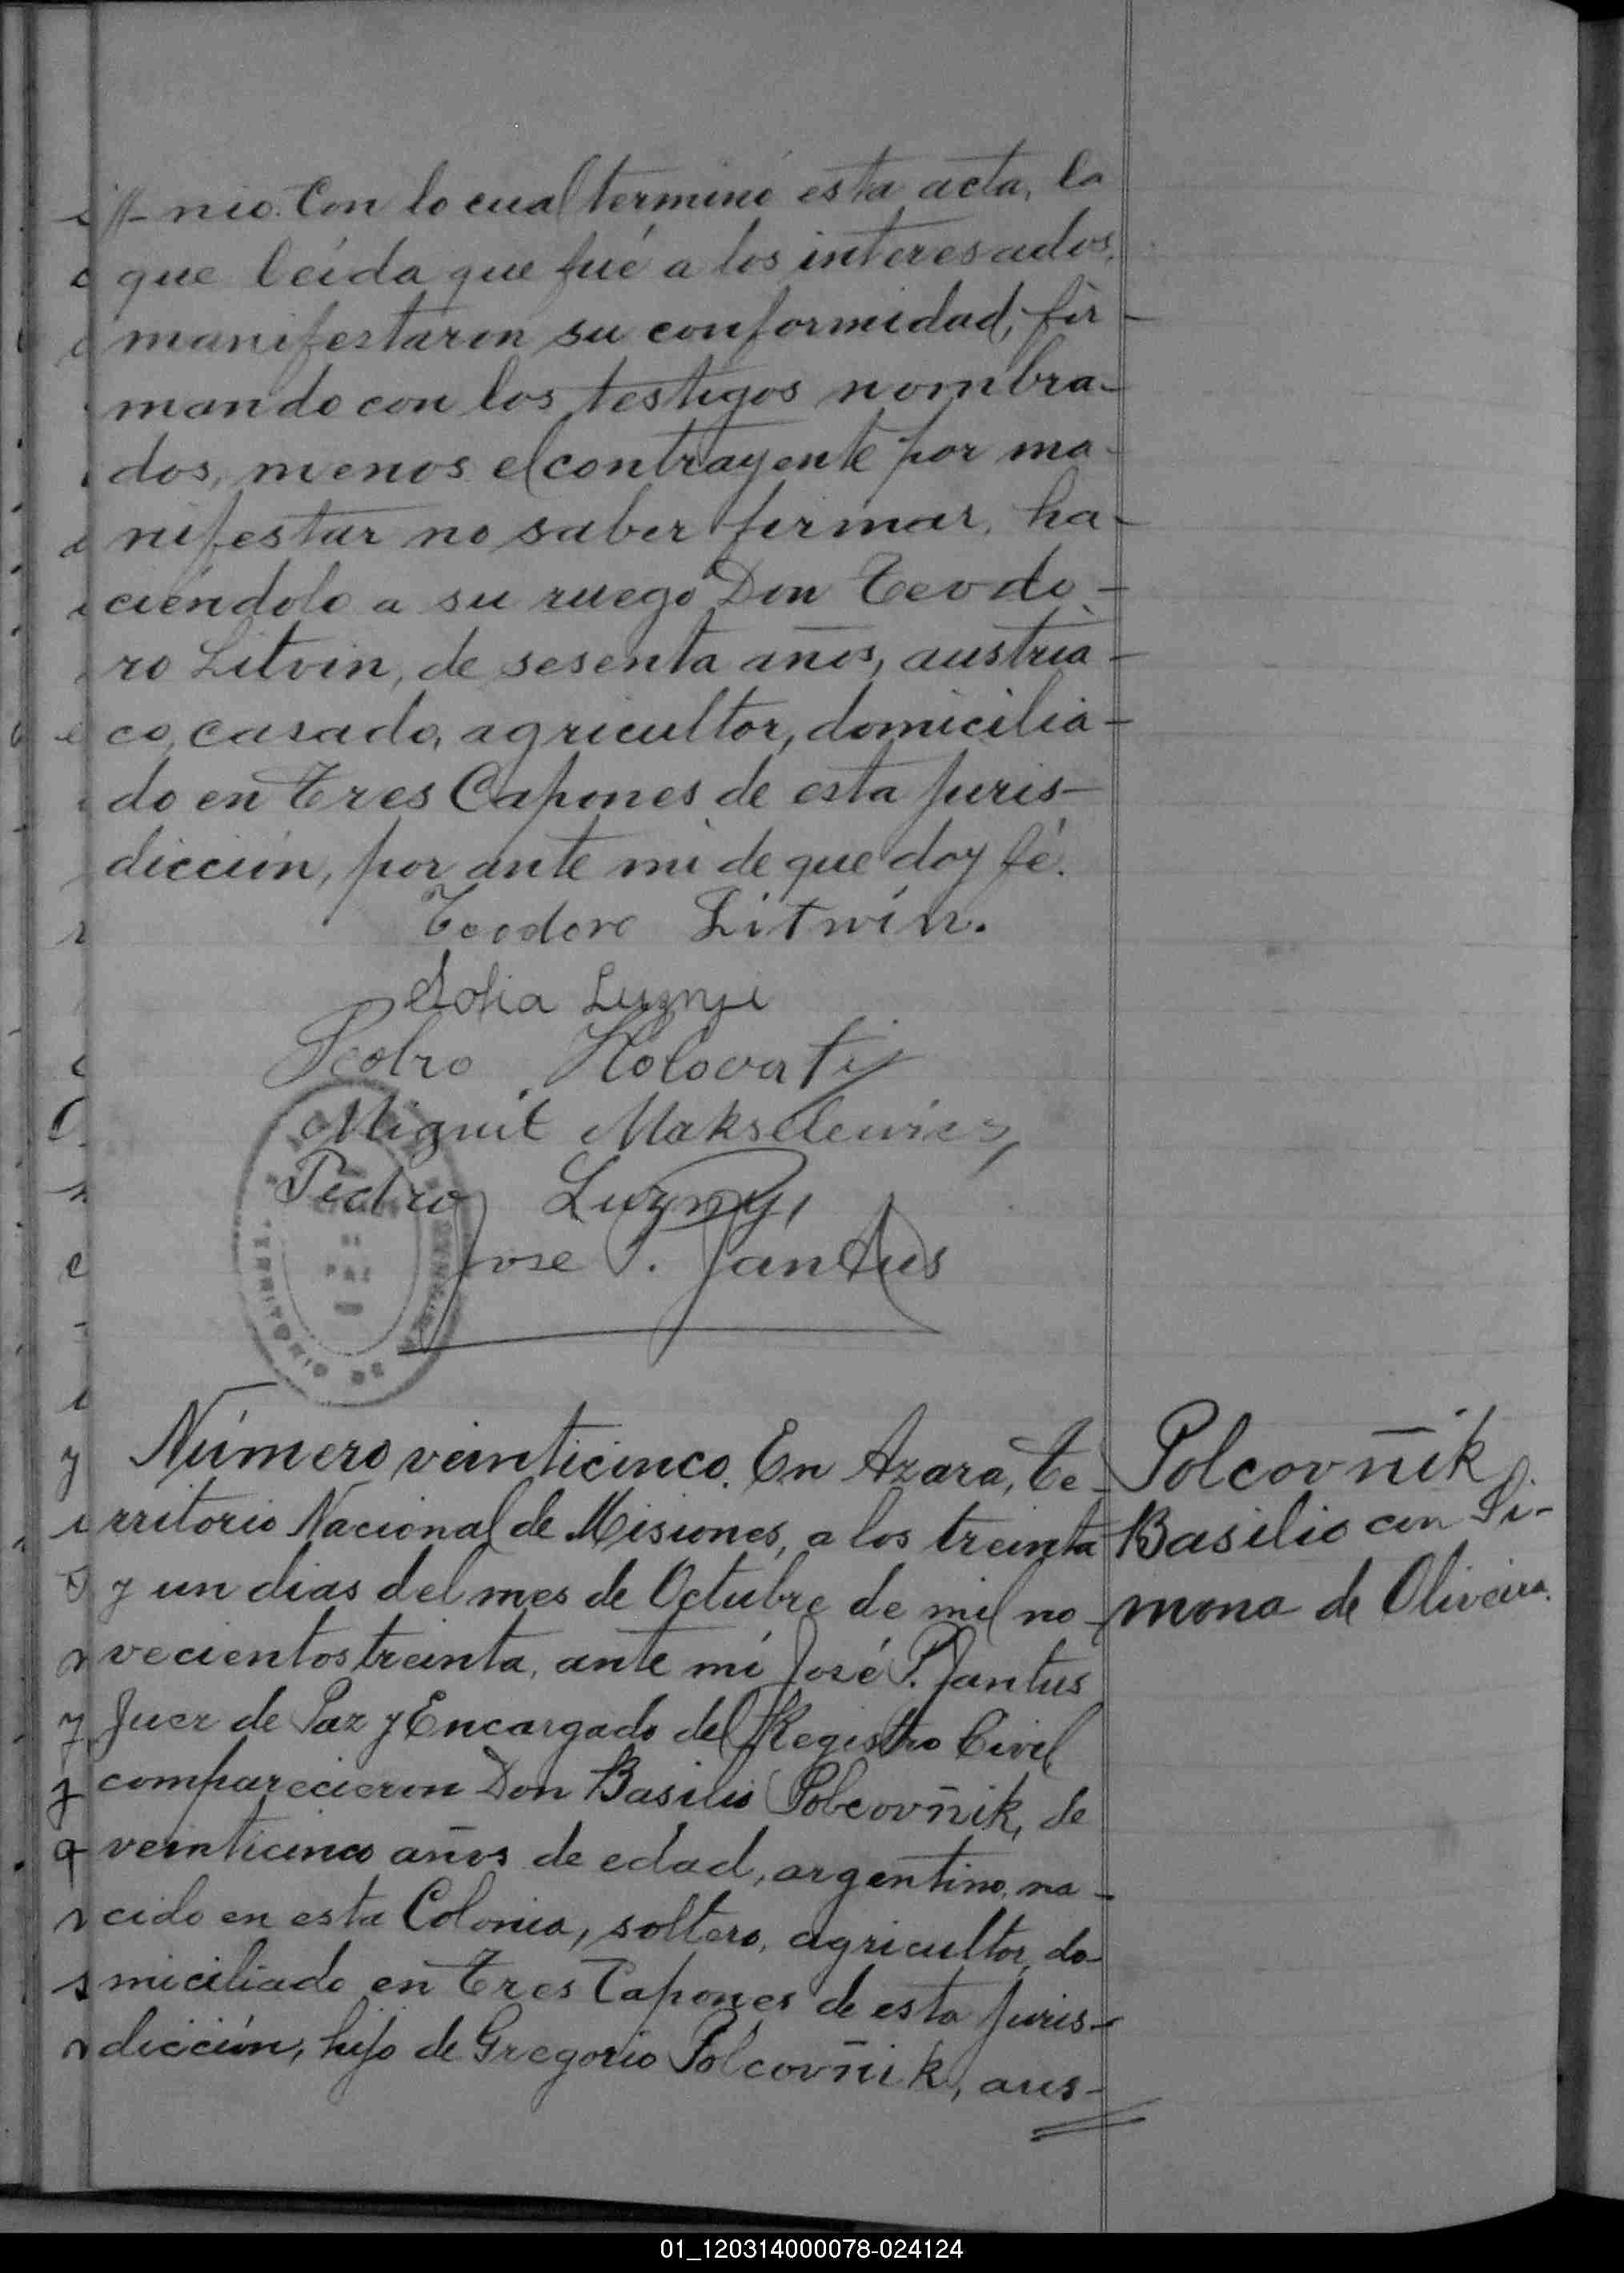 nio. Con lo cual terminó esta acta, la
que leída que fué a los interesados,
manifestaron su conformidad, fir-
mando con los testigos nombra-
dos, menos el contrayente por ma-
nifestar no saber firmar, ha-
ciéndolo a su ruego Don Teodo-
ro Litvin, de sesenta años, austria-
co, casado, agricultor, domicilia-
do en Tres Capones de esta juris-
dicción, por ante mi de que doy fé.
Teodoro Litwin.
Sofia Luznyi
Pedro Holovatiy
Miguil Makselewicz
Pedro Luzny,
José P. Jantus
PAZ
TERRITORIO DE
Número veinticinco. En Azara, Te-
rritorio Nacional de Misiones, a los treinta
y un dias del mes de Octubre de mil no-
vecientos treinta, ante mí José P. Jantus
Juez de Paz y Encargado del Registro Civil
comparecieron Don Basilio Polcovñik, de
veinticinco años de edad, argentino, na-
cido en esta Colonia, soltero, agricultor, do-
miciliado en Tres Capones de esta juris-
dicción, hijo de Gregorio Polcovñik, aus-
Polcovñik
Basilio con Si-
mona de Oliveira.
01_120314000078-024124